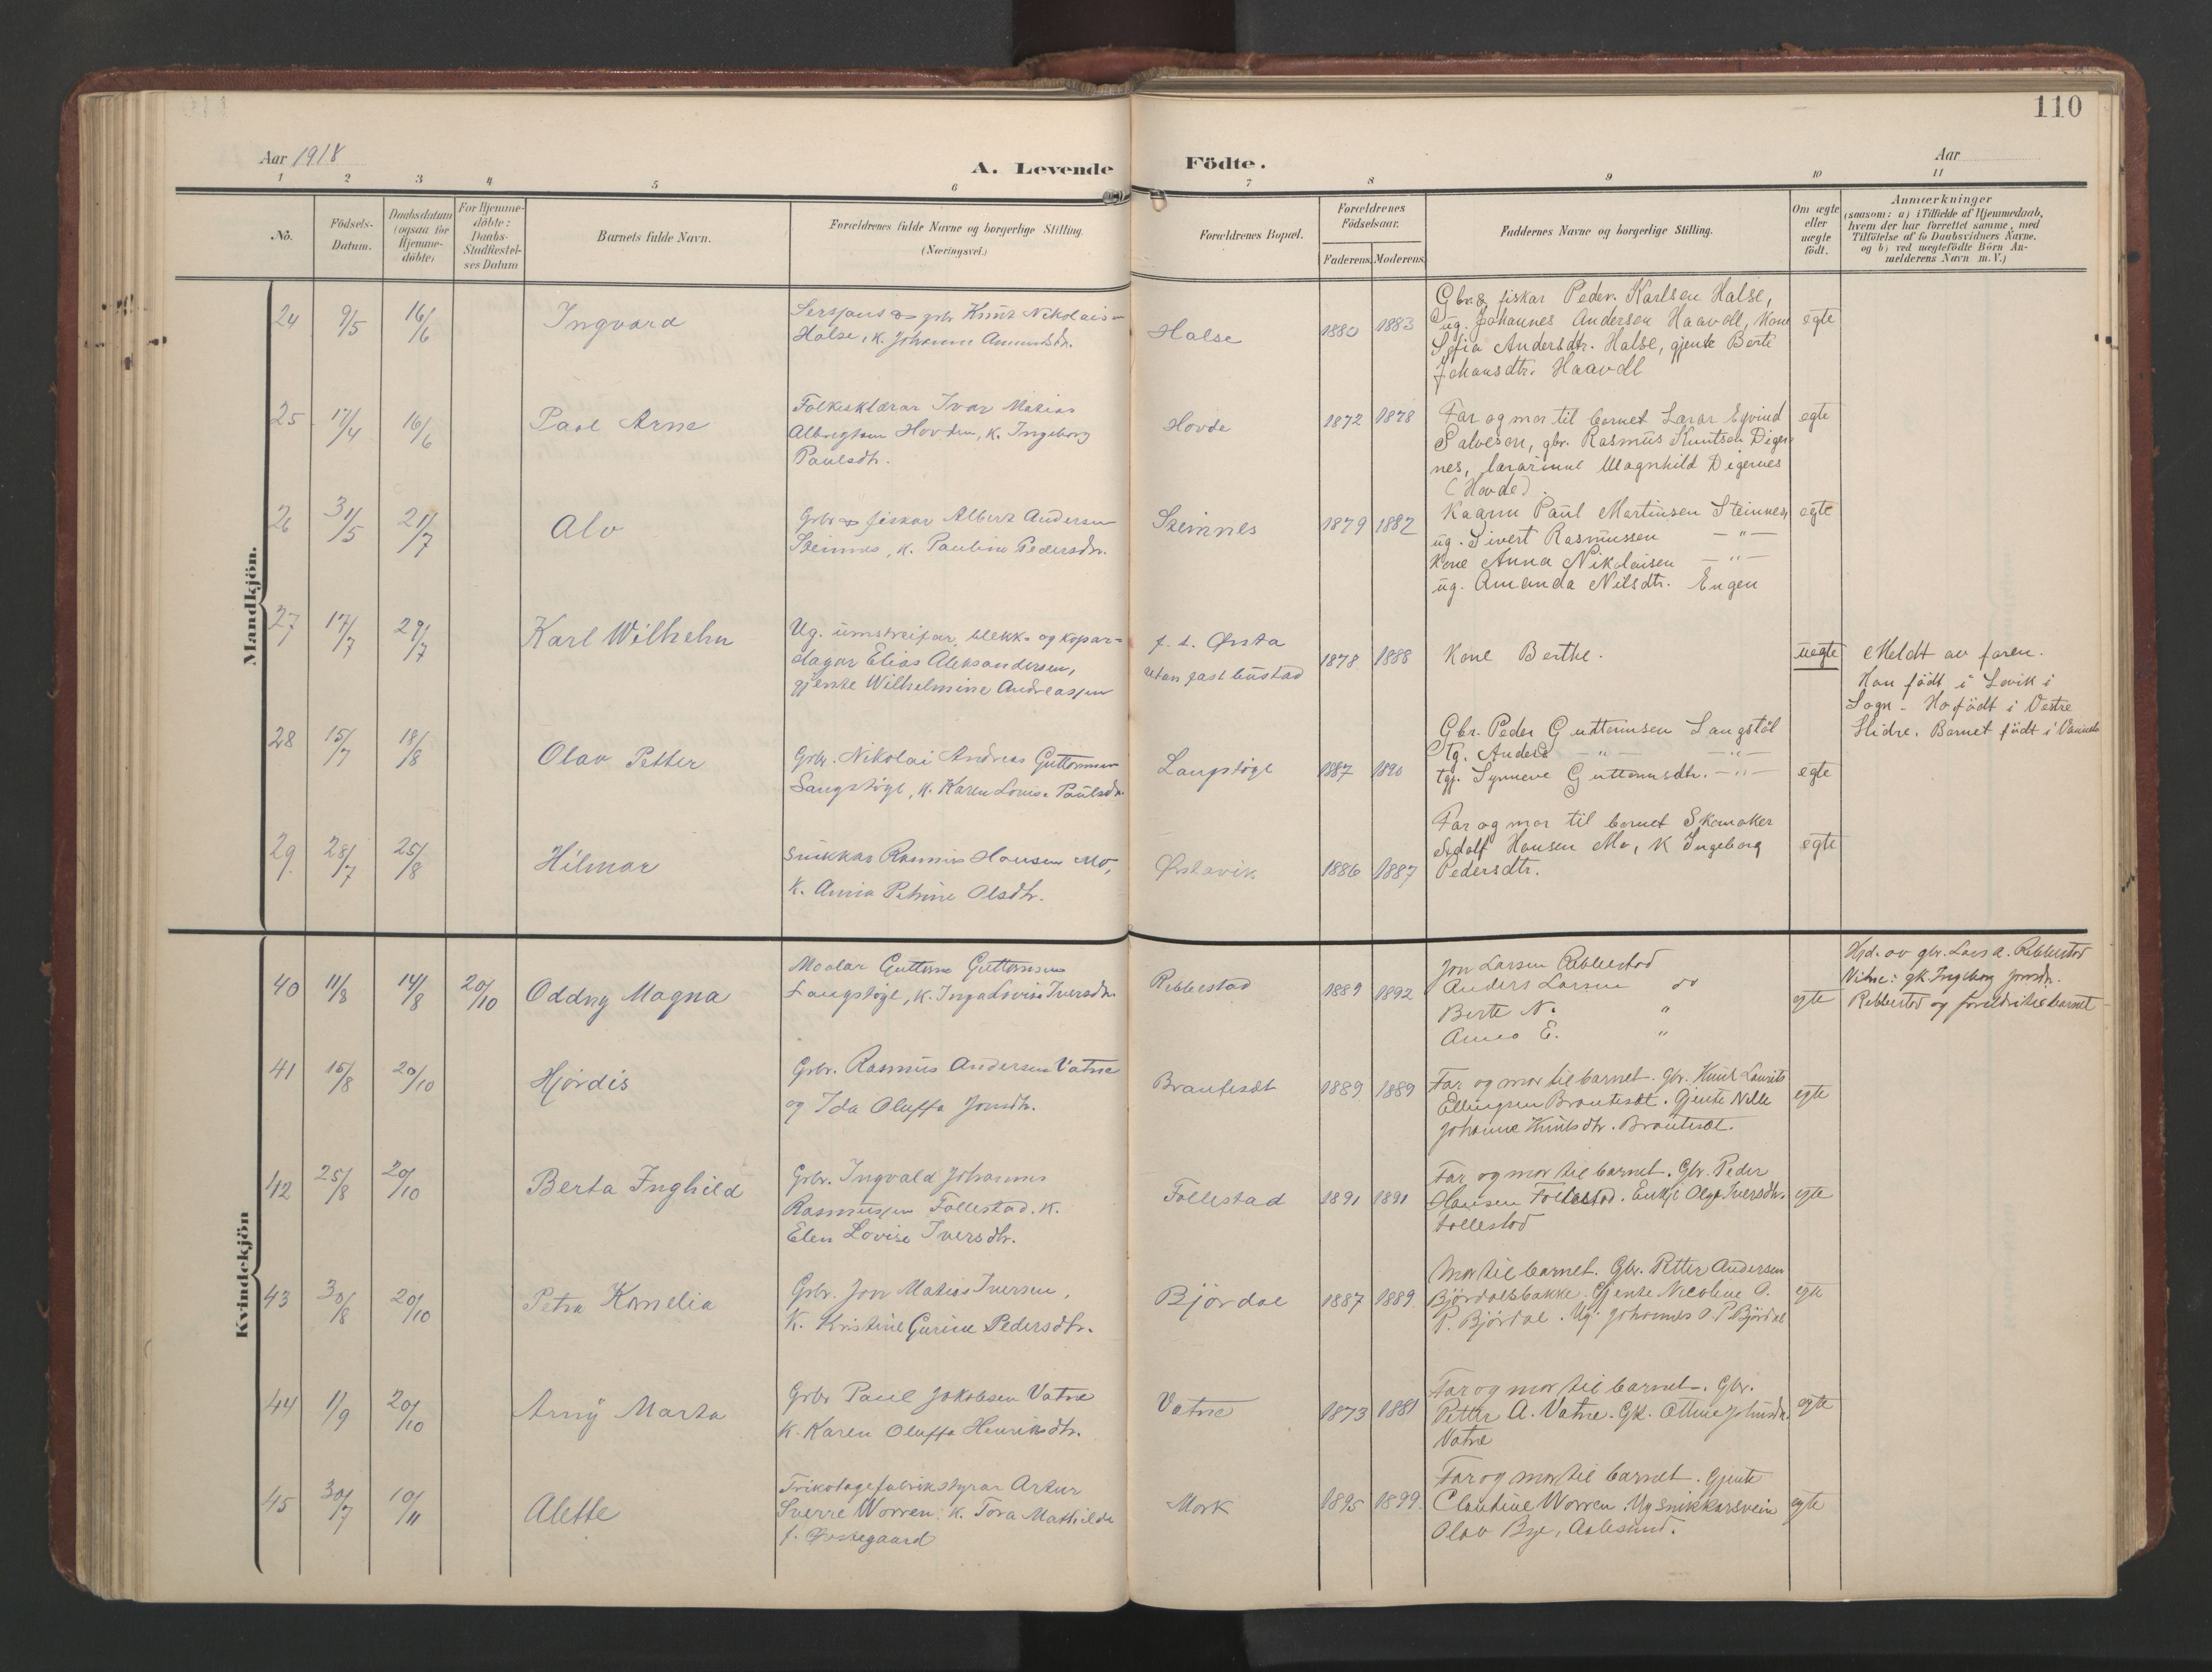 110
Aar 1918
A. Levende Födte.
Aar
1 2 3 4 5 6 7 8 9 10 11
No.
Födsels-
Datum.
Daabsdatum
(ogsaa for
Hjemme-
döbte)
For Hjemme-
döbte:
Daabs-
Stadfæstel-
ses Datum
Barnets fulde Navn.
Forældrenes fulde Navne og borgerlige Stilling.
(Næringsvei.)
Forældrenes Bopæl.
Forældrenes
Födselsaar.
Faderens. Moderens.
Faddernes Navne og borgerlige Stilling.
Om ægte
eller
uægte
födt.
Anmærkninger
(saasom: a) i Tilfælde af Hjemmedaab,
hvem der har forrettet samme, med
Tilföielse af to Daabsvidners Navne,
og b) ved uægtefödte Börn An-
melderens Navn m. V.)
Mandkjön.
24 9/5 16/6 Ingvard
Sersjant & gbr Knut Nikolaisen
Halse, K. Johanne Amundsdtr.
Halse 1880 1883
Gbr. & fiskar Peder Karlsen Halse,
ug. Johannes Andersen Haavoll, Kone
Sofia Andersdtr. Halse, gjente Berte
Johansdtr. Haavoll
egte
25 17/4 16/6 Paul Arne
Folkesklærar Ivar Matias
Albregtsen Hovden, K. Ingeborg
Paulsdtr.
Hovde 1872 1878
Far og mor til barnet Lærar Eyvind
Salveson, gbr. Rasmus Knutsen Diger-
nes, lærarinne Magnhild Digernes
(Hovde).
egte
26 31/5 21/7 Alv
Gbr & fiskar Albert Andersen
Steinnes, K. Pauline Pedersdtr.
Steinnes 1879 1882
Kaarm Paul Martinsen Steinnes,
ug. Sivert Rasmussen — " —
Kone Anna Nikolaisen — " —
ug. Amanda Nilsdtr. Engen
egte
27 17/7 29/7 Karl Wilhelm
Ug. umstreifar, blekk- og kopar-
slagar Elias Aleksandersen,
gjente Wilhelmine Andreassen
f. t. Ørsta
utan fast bustad
1878 1888
Kone Berthe.
uegte
Meldt av faren.
Han født i Lavik i
Sogn - Ho født i Vestre
Slidre. Barnet født i
28 15/7 18/8 Olav Petter
Gbr. Nikolai Andreas Guttormsen
Langstøyl, K. Karen Lovise Paulsdtr.
Langstøyl 1887 1890
Gbr. Peder Guttormsen Langstöl
Ug. Anders — " — — " —
tgj. Synneve Guttormsdtr. — " —
egte
29 28/7 25/8 Hilmar
Snikkar Rasmus Hansen Mo,
K. Anna Petrine Olsdtr.
Ørstavik 1886 1887
Far og mor til barnet Skomaker
Adolf Hansen Mo, K Ingeborg
Pedersdtr.
egte
Kvindekjön
40 11/8 14/8 20/10 Oddny Magna
Maalar Guttorm Guttormsen
Langstøyl, K. Inga Lovise Iversdtr.
Rebbestad 1889 1892
Jon Larsen Rebbestad
Anders Larsen do
Berte N. "
Anna E. "
egte
Hjd. av gbr. Lars A. Rebbestad
Vitne: gk. Ingeborg Jonsdtr.
Rebbestad og foreldri til barnet
41 15/8 20/10 Hjördis
Gbr. Rasmus Andersen Vatne
og Ida Oluffa Jonsdtr.
Brauteset 1889 1889
Far og mor til barnet. Gbr. Knut Laurits
Ellingsen Brauteset. Gjente Nille
Johanne Knutsdtr. Brauteset.
egte
42 25/8 20/10 Berta Inghild
Gbr. Ingvald Johannes
Rasmussen Follestad. K.
Elen Lovise Iversdtr.
Follestad 1891 1891
Far og mor til barnet. Gbr. Peder
Hansen Follestad. Enkje Olga Iversdtr.
Follestad
egte
43 30/8 20/10 Petra Kornelia
Gbr. Jon Matias Iversen,
K. Kristine Gurine Pedersdtr.
Bjørdal 1887 1889
Mor til barnet. Gbr. Petter Andersen
Bjørdalsbakke. Gjente Nicoline O.
P. Bjørdal. Ug. Johannes O. P Bjørdal
egte
44 11/9 20/10 Arny Marta
Gbr Paul Jakobsen Vatne
K. Karen Oluffa Henriksdtr.
Vatne 1873 1881
Far og mor til barnet. Gbr.
Petter A. Vatne. Gk. Oline Johnsdtr.
Vatne
egte
45 30/7 10/11 Alette
Trikotagefabrikstyrar Artur
Sverre Worren, K. Tora Mathilde
f. Østegaard
Mork 1895 1899
Far og mor til barnet. Gjente
Claudine Worren. Ug snikkarsvein
Olav Bye, Aalesund.
egte